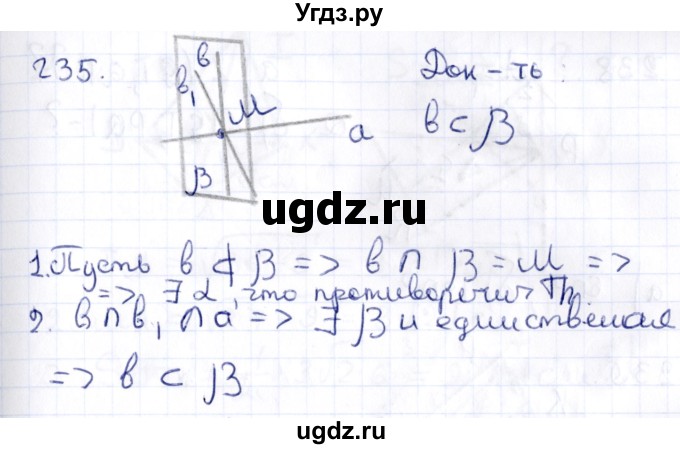 Угдз.ру
235.
в
в₁
М
а
β
Док-ть
в ⊂ β
ugdz.ru
1. Пусть в ⊄ β => в ∩ β = М =>
=> ∃ α, что противоречит Th
2. в ∩ в₁ ∩ а => ∃ β и единственая
=> в ⊂ β
ugdz.ru